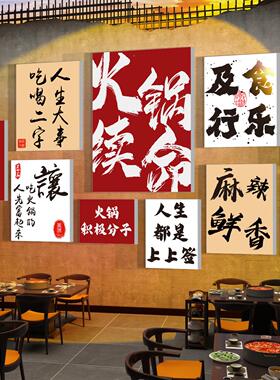 人生大事
吃喝二字
火锅
续命
及食
行乐
讓
吃火锅的
人先富起来
火锅
积极分子
人生
都是
上上签
麻辣
鲜香